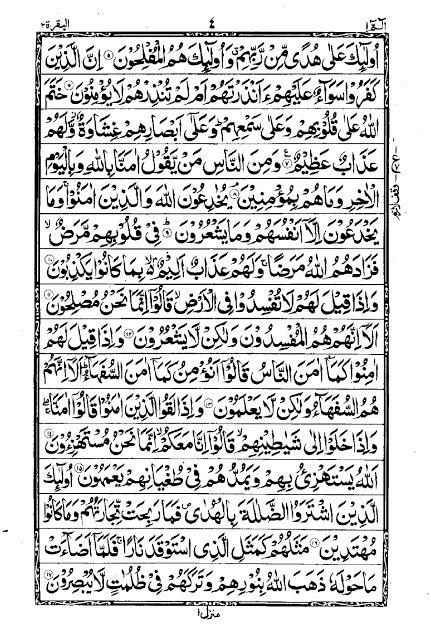 الٓمّٓ ١ ٤ البقرة ٢
اُولٰٓئِكَ عَلٰى هُدًى مِّنْ رَّبِّهِمْ وَاُولٰٓئِكَ هُمُ الْمُفْلِحُوْنَ ۝٥ اِنَّ الَّذِيْنَ
كَفَرُوْا سَوَآءٌ عَلَيْهِمْ ءَاَنْذَرْتَهُمْ اَمْ لَمْ تُنْذِرْهُمْ لَا يُؤْمِنُوْنَ ۝٦ خَتَمَ
اللّٰهُ عَلٰى قُلُوْبِهِمْ وَعَلٰى سَمْعِهِمْ ؕ وَعَلٰٓى اَبْصَارِهِمْ غِشَاوَةٌ وَّلَهُمْ
عَذَابٌ عَظِيْمٌ ۝٧ وَمِنَ النَّاسِ مَنْ يَّقُوْلُ اٰمَنَّا بِاللّٰهِ وَبِالْيَوْمِ
الْاٰخِرِ وَمَا هُمْ بِمُؤْمِنِيْنَ ۝٨ يُخٰدِعُوْنَ اللّٰهَ وَالَّذِيْنَ اٰمَنُوْا ۚ وَمَا
يَخْدَعُوْنَ اِلَّآ اَنْفُسَهُمْ وَمَا يَشْعُرُوْنَ ۝٩ فِيْ قُلُوْبِهِمْ مَّرَضٌ ۙ
فَزَادَهُمُ اللّٰهُ مَرَضًا ۚ وَلَهُمْ عَذَابٌ اَلِيْمٌ ۢ ۙ بِمَا كَانُوْا يَكْذِبُوْنَ ۝١٠
وَاِذَا قِيْلَ لَهُمْ لَا تُفْسِدُوْا فِي الْاَرْضِ ۙ قَالُوْٓا اِنَّمَا نَحْنُ مُصْلِحُوْنَ ۝١١
اَلَآ اِنَّهُمْ هُمُ الْمُفْسِدُوْنَ وَلٰكِنْ لَّا يَشْعُرُوْنَ ۝١٢ وَاِذَا قِيْلَ لَهُمْ
اٰمِنُوْا كَمَآ اٰمَنَ النَّاسُ قَالُوْٓا اَنُؤْمِنُ كَمَآ اٰمَنَ السُّفَهَآءُ ؕ اَلَآ اِنَّهُمْ
هُمُ السُّفَهَآءُ وَلٰكِنْ لَّا يَعْلَمُوْنَ ۝١٣ وَاِذَا لَقُوا الَّذِيْنَ اٰمَنُوْا قَالُوْٓا اٰمَنَّا ۚ
وَاِذَا خَلَوْا اِلٰى شَيٰطِيْنِهِمْ ۙ قَالُوْٓا اِنَّا مَعَكُمْ ۙ اِنَّمَا نَحْنُ مُسْتَهْزِءُوْنَ ۝١٤
اَللّٰهُ يَسْتَهْزِئُ بِهِمْ وَيَمُدُّهُمْ فِيْ طُغْيَانِهِمْ يَعْمَهُوْنَ ۝١٥ اُولٰٓئِكَ
الَّذِيْنَ اشْتَرَوُا الضَّلٰلَةَ بِالْهُدٰى ۪ فَمَا رَبِحَتْ تِّجَارَتُهُمْ وَمَا كَانُوْا
مُهْتَدِيْنَ ۝١٦ مَثَلُهُمْ كَمَثَلِ الَّذِي اسْتَوْقَدَ نَارًا ۚ فَلَمَّآ اَضَآءَتْ
مَا حَوْلَهٗ ذَهَبَ اللّٰهُ بِنُوْرِهِمْ وَتَرَكَهُمْ فِيْ ظُلُمٰتٍ لَّا يُبْصِرُوْنَ ۝١٧
منزل ١